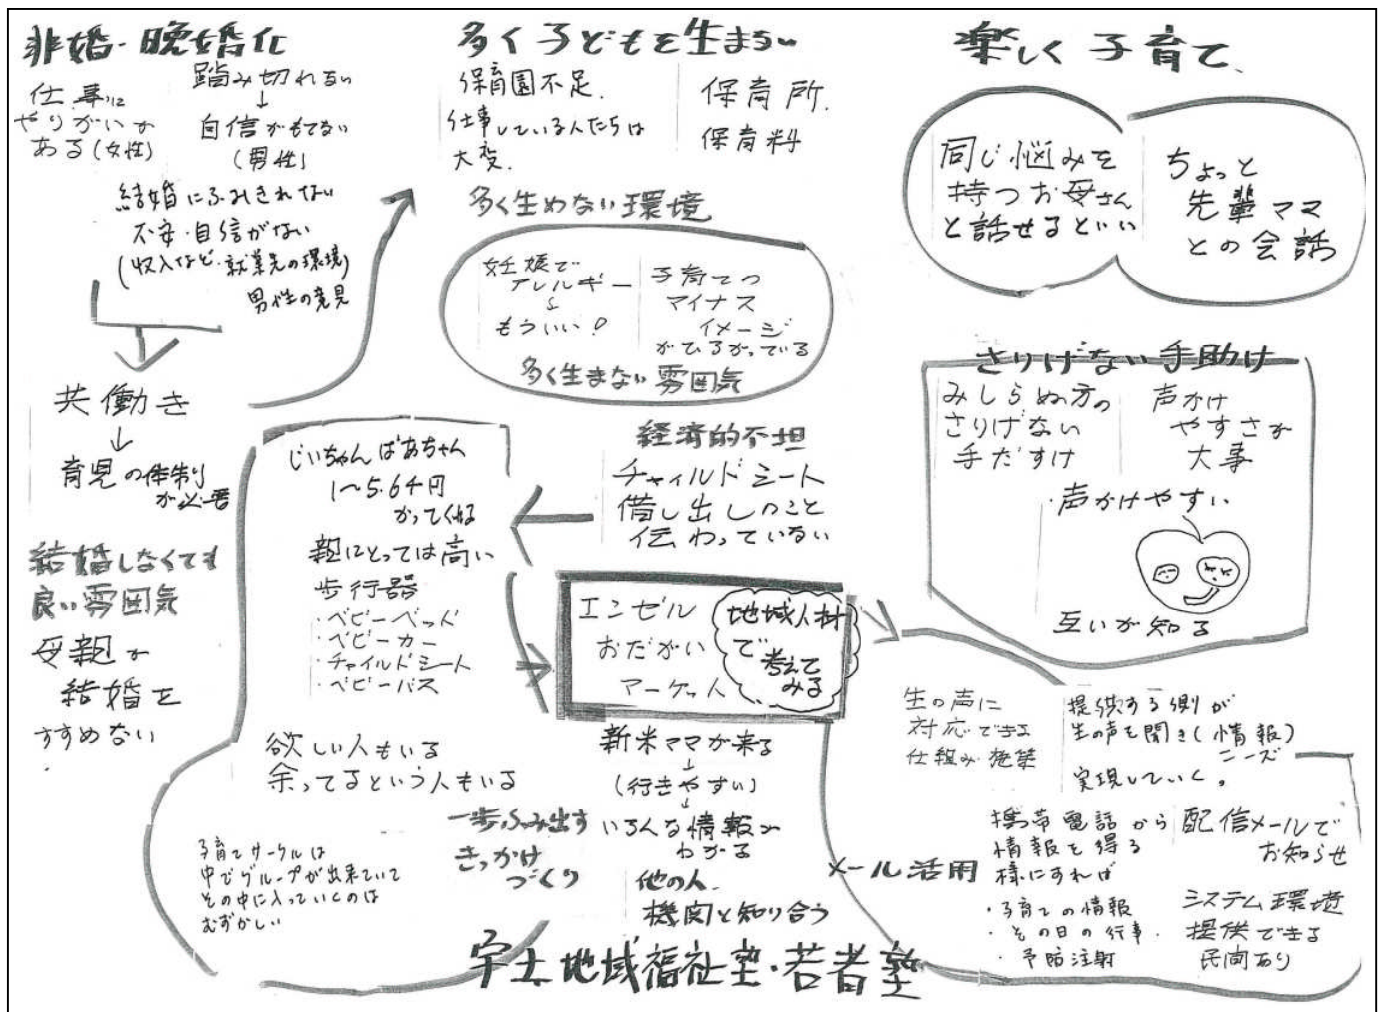 非婚・晩婚化
仕事に
やりがいが
ある(女性)
踏み切れない
↓
自信がもてない
(男性)
結婚にふみきれない
不安・自信がない
(収入など・就業先の環境)
男性の意見
共働き
↓
育児の体制
が必要
結婚しなくても
良い雰囲気
母親が
結婚を
すすめない
多く子どもを生まない
保育園不足.
仕事している人たちは
大変.
保育所.
保育料
多く生めない環境
妊娠で
アレルギー
もういい!
子育ての
マイナス
イメージ
がひろがっている
多く生まない雰囲気
楽しく子育て
同じ悩みを
持つお母さん
と話せるといい
ちょっと
先輩ママ
との会話
さりげない手助け
みしらぬ方の
さりげない
手だすけ
声かけ
やすさが
大事
・声かけやすい
互いが知る
経済的不担
チャイルドシート
借し出しのこと
伝わっていない
じいちゃんばあちゃん
かってくれる
親にとっては高い
歩行器
・ベビーベッド
・ベビーカー
・チャイルドシート
・ベビーバス
欲しい人もいる
余ってるという人もいる
子育てサークルは
中でグループが出来ていて
その中に入っていくのは
むずかしい
エンゼル
おたがい
マーケット
地域人材
で
考えて
みる
新米ママが来る
↓
(行きやすい)
↓
いろんな情報が
わかる
他の人.
機関と知り合う
一歩ふみ出す
きっかけ
づくり
生の声に
対応できる
仕組み
提供する側が
生の声を聞き(情報)
ニーズ
実現していく。
メール活用
携帯電話から
情報を得る
様にすれば
・子育ての情報
・その日の行事.
・予防注射
配信メールで
お知らせ
システム環境
提供できる
民間あり
宇土地域福祉塾・若者塾